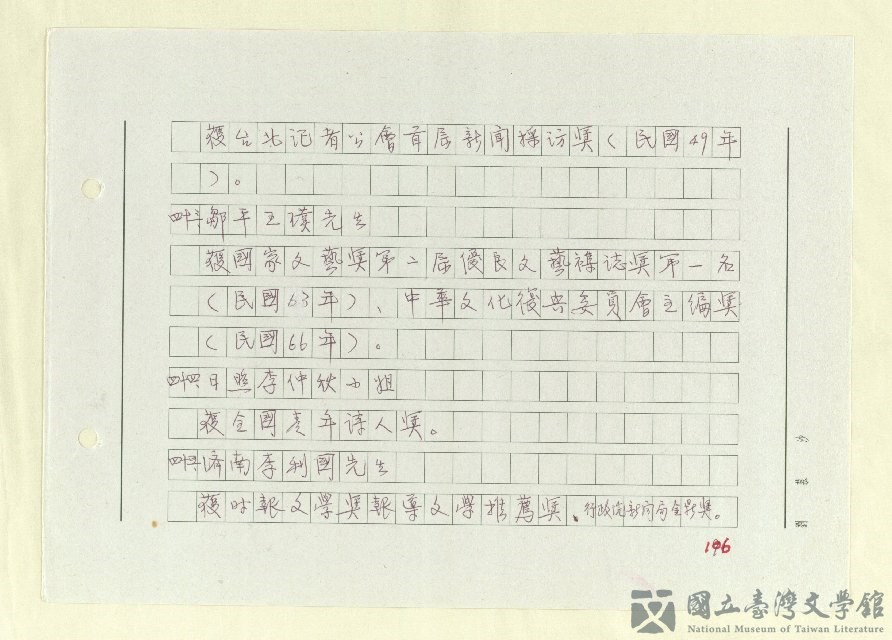 獲台北記者公會首屆新聞採訪獎(民國49年
)。
四十三鄒平王璞先生
獲國家文藝獎第二屆優良文藝雜誌獎第一名
(民國63年)、中華文化復興委員會主編獎
(民國66年)。
四十四日照李仲秋小姐
獲全國青年詩人獎。
四十五濟南李利國先生
獲时報文學獎報導文學推薦獎、行政院新聞局金鼎獎。
146
國立臺灣文學館
National Museum of Taiwan Literature